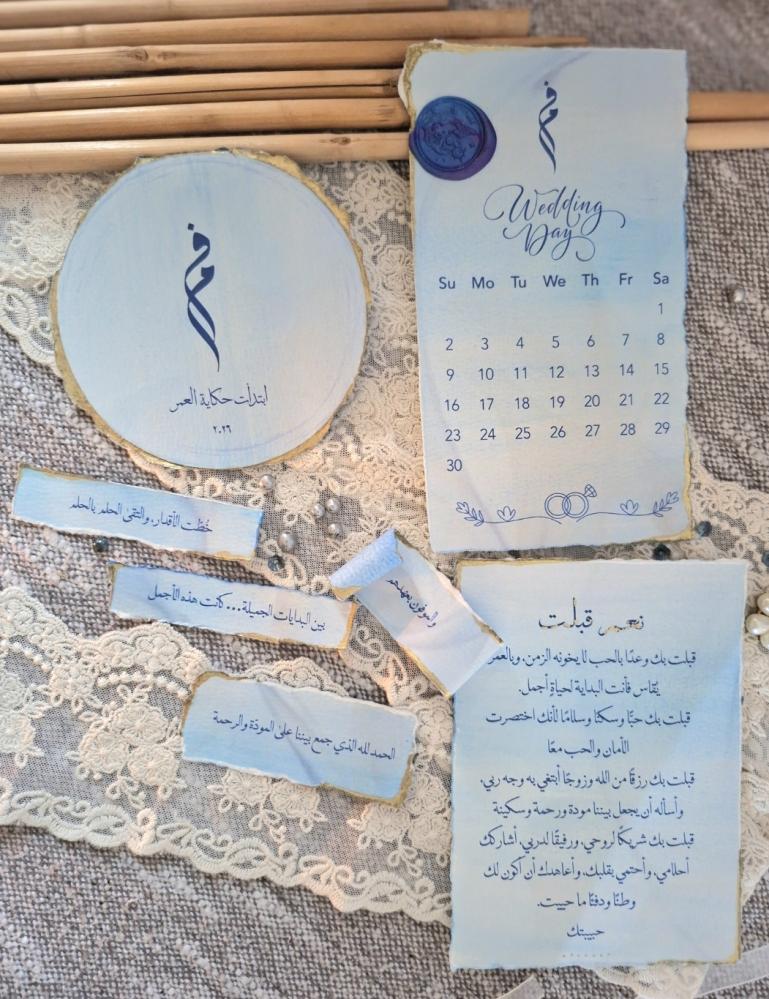 ابتدأت حكاية العمر
٢٠٢٦
Wedding
Day
Su Mo Tu We Th Fr Sa
1
2 3 4 5 6 7 8
9 10 11 12 13 14 15
16 17 18 19 20 21 22
23 24 25 26 27 28 29
30
خُطّت الأقدار، والتقى الحلم بالحلم
بين البدايات الجميلة... كانت هذه الأجمل
والموفون بعهدهم
الحمد لله الذي جمع بيننا على المودّة والرحمة
نعم قبلت
قبلت بك وعدًا بالحب لا يخونه الزمن، وبالعمر
يُقاس فأنت البداية لحياةٍ أجمل.
قبلت بك حبًا وسكنًا وسلامًا لأنك اختصرت
الأمان والحب معًا
قبلت بك رزقًا من الله وزوجًا أبتغي به وجه ربي،
وأسأله أن يجعل بيننا مودة ورحمة وسكينة
قبلت بك شريكًا لروحي، ورفيقًا لدربي، أشاركك
أحلامي، وأحتمي بقلبك، وأعاهدك أن أكون لك
وطنًا ودفئًا ما حييت.
حبيبتك